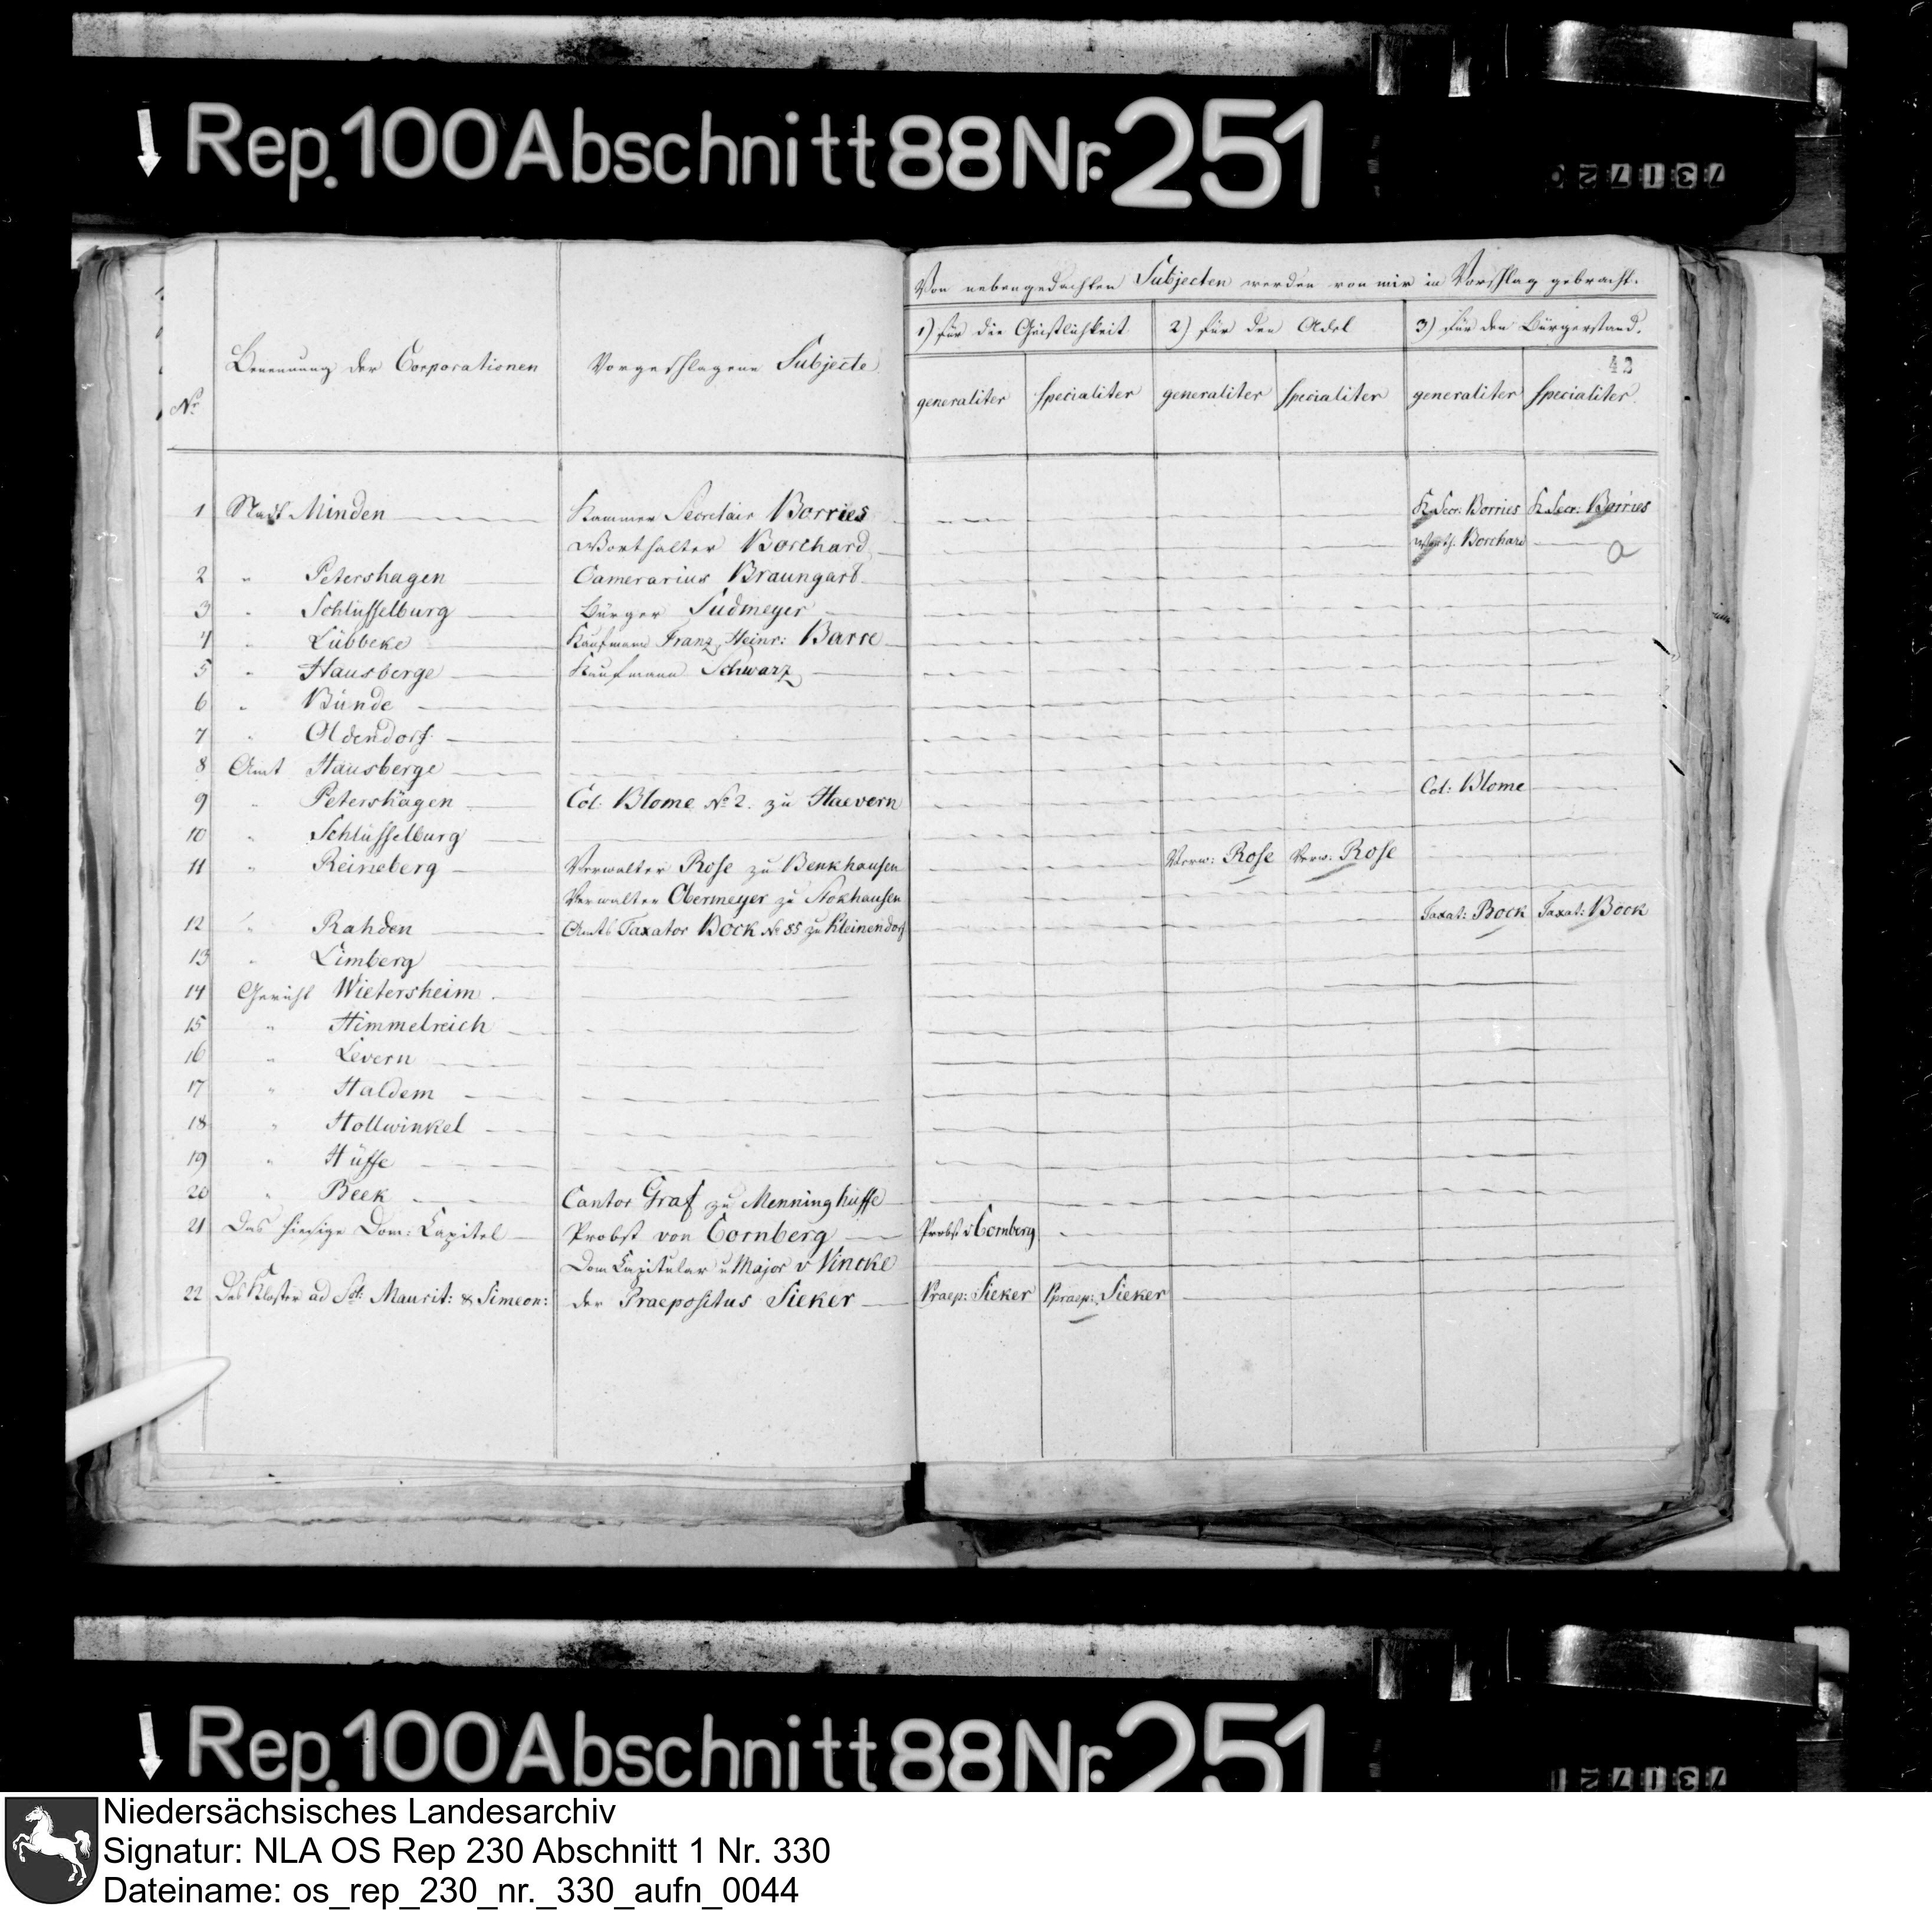 Rep. 100 Abschnitt 88 Nr. 251
Von nebengedachten Subjecten werden von mir in Vorschlag gebracht.
1) für die Geistlichkeit 2) für den Adel 3) für den Bürgerstand.
42
No. Benennung der Corporationen Vorgeschlagene Subjecte generaliter specialiter generaliter specialiter generaliter specialiter
1 Stadt Minden Kammer Secretair Borries K. Secr: Borries K. Secr: Borries
Worthalter Borchard Worth. Borchard
a
2 " Petershagen Camerarius Braungart
3 " Schlüsselburg Bürger Sudmeyer
4 " Lübbeke Kaufmann Franz Heinr: Barre
5 " Hausberge Kaufmann Schwarz
6 " Bünde
7 " Oldendorf
8 Amt Hausberge
9 " Petershagen Col: Blome No 2. zu Haevern Col: Blome
10 " Schlüsselburg
11 " Reineberg Verwalter Rose zu Benkhausen Verw: Rose Verw: Rose
Verwalter Obermeyer zu Stokhausen
12 " Rahden Amts Taxator Bock No 85 zu Kleinendorf Taxat: Bock Taxat: Bock
13 " Limberg
14 Gericht Wietersheim
15 " Himmelreich
16 " Levern
17 " Haldem
18 " Hollwinkel
19 " Hüffe
20 " Beek Cantor Graf zu Menninghüffe
21 Das hiesige Dom: Capitel Probst von Cornberg Probst v Cornberg
Dom Capitular u Major v Vincke
22 Das Kloster ad Sct: Maurit: & Simeon: der Praepositus Sieker Praep: Sieker Praep: Sieker
Rep. 100 Abschnitt 88 Nr. 251
Niedersächsisches Landesarchiv
Signatur: NLA OS Rep 230 Abschnitt 1 Nr. 330
Dateiname: os_rep_230_nr._330_aufn_0044